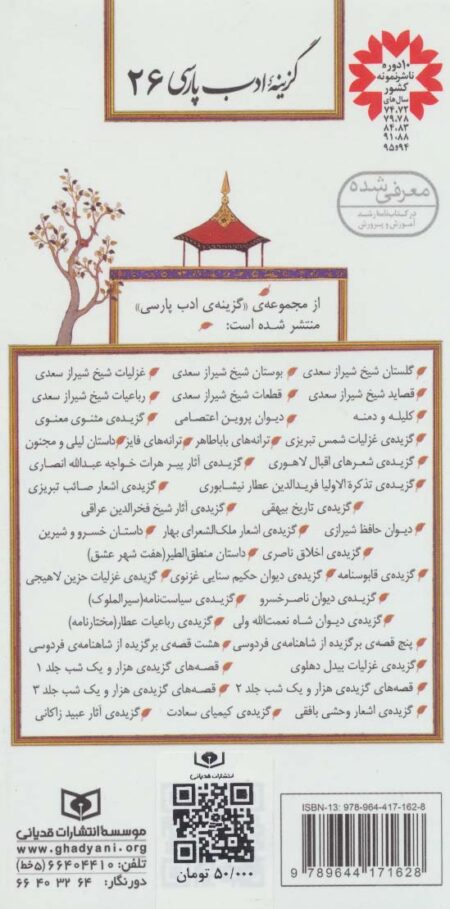 گزینهٔ ادب پارسی ۲۶
۱۰ دوره
ناشر نمونه
کشور
سال‌های
۷۴،۷۲
۷۹،۷۸
۸۴،۸۳
۹۱،۸۸
۹۴و۹۵
معرفی شده
در کتاب‌نامه رشد
آموزش و پرورش
از مجموعه‌ی «گزینه‌ی ادب پارسی»
منتشر شده است:
گلستان شیخ شیراز سعدی بوستان شیخ شیراز سعدی غزلیات شیخ شیراز سعدی
قصاید شیخ شیراز سعدی قطعات شیخ شیراز سعدی رباعیات شیخ شیراز سعدی
کلیله و دمنه دیوان پروین اعتصامی گزیده‌ی مثنوی معنوی
گزیده‌ی غزلیات شمس تبریزی ترانه‌های باباطاهر ترانه‌های فایز داستان لیلی و مجنون
گزیده‌ی شعرهای اقبال لاهوری گزیده‌ی آثار پیر هرات خواجه عبدالله انصاری
گزیده‌ی تذکرة الاولیا فریدالدین عطار نیشابوری گزیده‌ی اشعار صائب تبریزی
گزیده‌ی تاریخ بیهقی گزیده‌ی آثار شیخ فخرالدین عراقی
دیوان حافظ شیرازی گزیده‌ی اشعار ملک‌الشعرای بهار داستان خسرو و شیرین
گزیده‌ی اخلاق ناصری داستان منطق‌الطیر(هفت شهر عشق)
گزیده‌ی قابوسنامه گزیده‌ی دیوان حکیم سنایی غزنوی گزیده‌ی غزلیات حزین لاهیجی
گزیده‌ی دیوان ناصرخسرو گزیده‌ی سیاست‌نامه(سیرالملوک)
گزیده‌ی دیوان شاه نعمت‌الله ولی گزیده‌ی رباعیات عطار(مختارنامه)
پنج قصه‌ی برگزیده از شاهنامه‌ی فردوسی هشت قصه‌ی برگزیده از شاهنامه‌ی فردوسی
گزیده‌ی غزلیات بیدل دهلوی قصه‌های گزیده‌ی هزار و یک شب جلد ۱
قصه‌های گزیده‌ی هزار و یک شب جلد ۲ قصه‌های گزیده‌ی هزار و یک شب جلد ۳
گزیده‌ی اشعار وحشی بافقی گزیده‌ی کیمیای سعادت گزیده‌ی آثار عبید زاکانی
انتشارات قدیانی
۵۰/۰۰۰ تومان
موسسه انتشارات قدیانی
www.ghadyani.org
تلفن: ۶۶۴۰۴۴۱۰ (۵خط)
دورنگار: ۶۶۴۰۳۲۶۴
ISBN-13: 978-964-417-162-8
9 789644 171628